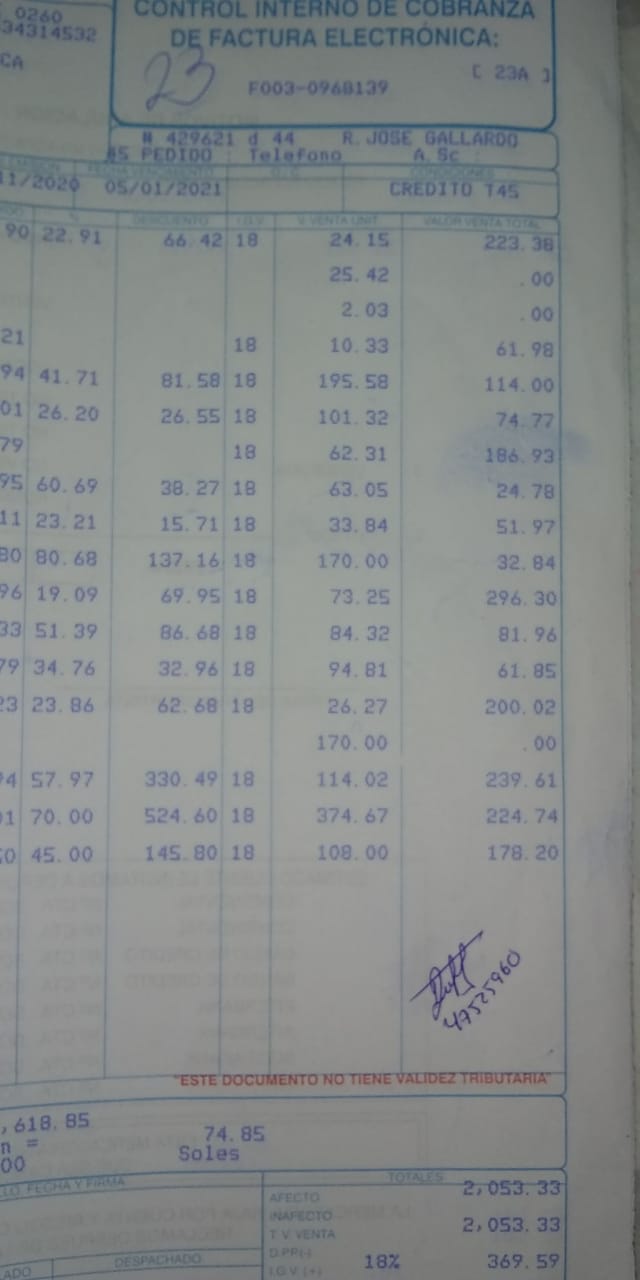 CONTROL INTERNO DE COBRANZA
DE FACTURA ELECTRÓNICA:
0260
34314532
CA
23
[ 23A ]
F003-0968139
# 429621 d 44 R. JOSE GALLARDO
#5 PEDIDO : Telefono A. Sc :
FECHA VENCIMIENTO CONDICIONES
11/2020 05/01/2021 CREDITO T45
% DESCUENTO I.G.V. V. VENTA UNIT. VALOR VENTA TOTAL
90 22.91 66.42 18 24.15 223.38
25.42 .00
2.03 .00
21 18 10.33 61.98
94 41.71 81.58 18 195.58 114.00
01 26.20 26.55 18 101.32 74.77
79 18 62.31 186.93
95 60.69 38.27 18 63.05 24.78
11 23.21 15.71 18 33.84 51.97
80 80.68 137.16 18 170.00 32.84
96 19.09 69.95 18 73.25 296.30
33 51.39 86.68 18 84.32 81.96
79 34.76 32.96 18 94.81 61.85
23 23.86 62.68 18 26.27 200.02
170.00 .00
94 57.97 330.49 18 114.02 239.61
01 70.00 524.60 18 374.67 224.74
50 45.00 145.80 18 108.00 178.20
47525960
"ESTE DOCUMENTO NO TIENE VALIDEZ TRIBUTARIA"
,618.85 74.85
n = Soles
00
LO, FECHA Y FIRMA
TOTALES
AFECTO 2,053.33
INAFECTO
T. V. VENTA 2,053.33
D.PP.(-)
I.G.V. (+) 18% 369.59
DESPACHADO